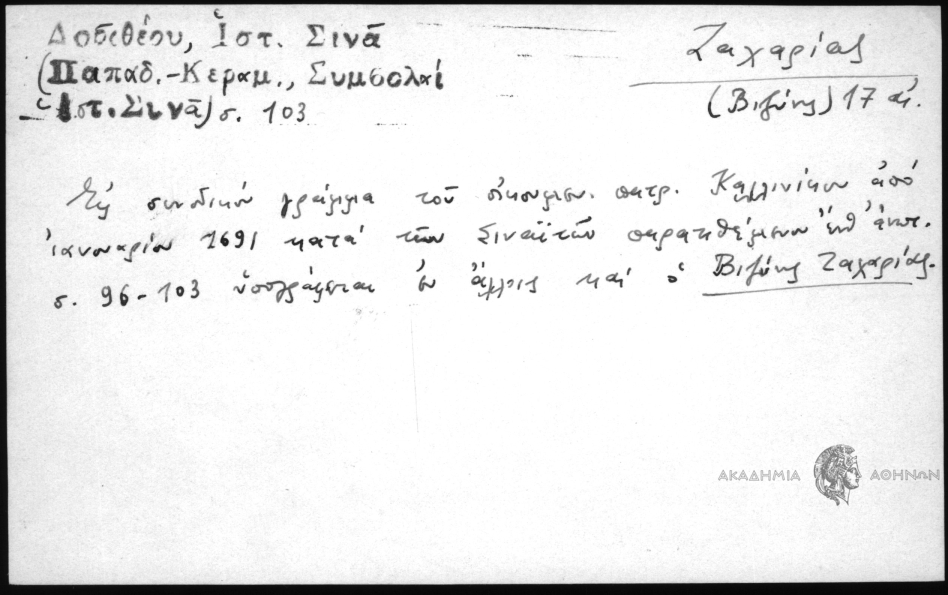 Δοσιθέου, Ἱστ. Σινᾶ
(Παπαδ.-Κεραμ., Συμβολαί
Ἱστ. Σινᾶ) σ. 103
Ζαχαρίας
(Βιζύης) 17 αἰ.
Εἰς συνοδικόν γράμμα τοῦ οἰκουμεν. πατρ. Καλλινίκου ἀπό
ἰανουαρίου 1691 κατά τῶν Σιναϊτῶν παρατιθέμενον ἐπ' ἀνωτ.
σ. 96-103 ὑπογράφεται ἐν ἄλλοις καί ὁ Βιζύης Ζαχαρίας.
ΑΚΑΔΗΜΙΑ ΑΘΗΝΩΝ